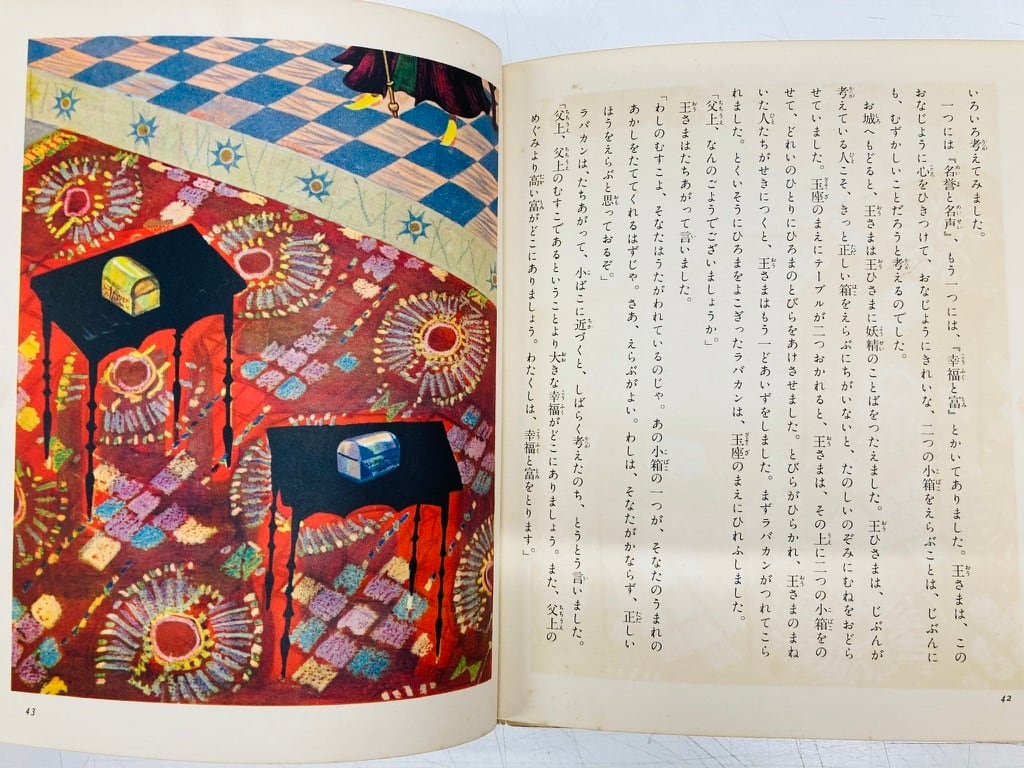 いろいろ考えてみました。
一つには『名誉と名声』、もう一つには、『幸福と富』とかいてありました。王さまは、この
おなじように心をひきつけて、おなじようにきれいな、二つの小箱をえらぶことは、じぶんに
も、むずかしいことだろうと考えるのでした。
お城へもどると、王さまは王ひさまに妖精のことばをつたえました。王ひさまは、じぶんが
考えている人こそ、きっと正しい箱をえらぶにちがいないと、たのしいのぞみにむねをおどら
せていました。玉座のまえにテーブルが二つおかれると、王さまは、その上に二つの小箱をの
せて、どれいのひとりにひろまのとびらをあけさせました。とびらがひらかれ、王さまのまね
いた人たちがせきにつくと、王さまはもう一どあいずをしました。まずラバカンがつれてこら
れました。とくいそうにひろまをよこぎったラバカンは、玉座のまえにひれふしました。
「父上、なんのごようでございましょうか。」
王さまはたちあがって言いました。
「わしのむすこよ、そなたはうたがわれているのじゃ。あの小箱の一つが、そなたのうまれの
あかしをたててくれるはずじゃ。さあ、えらぶがよい。わしは、そなたがかならず、正しい
ほうをえらぶと思っておるぞ。」
ラバカンは、たちあがって、小ばこに近づくと、しばらく考えたのち、とうとう言いました。
「父上、父上のむすこであるということより大きな幸福がどこにありましょう。また、父上の
めぐみより高い富がどこにありましょう。わたくしは、幸福と富をとります」。
42
43